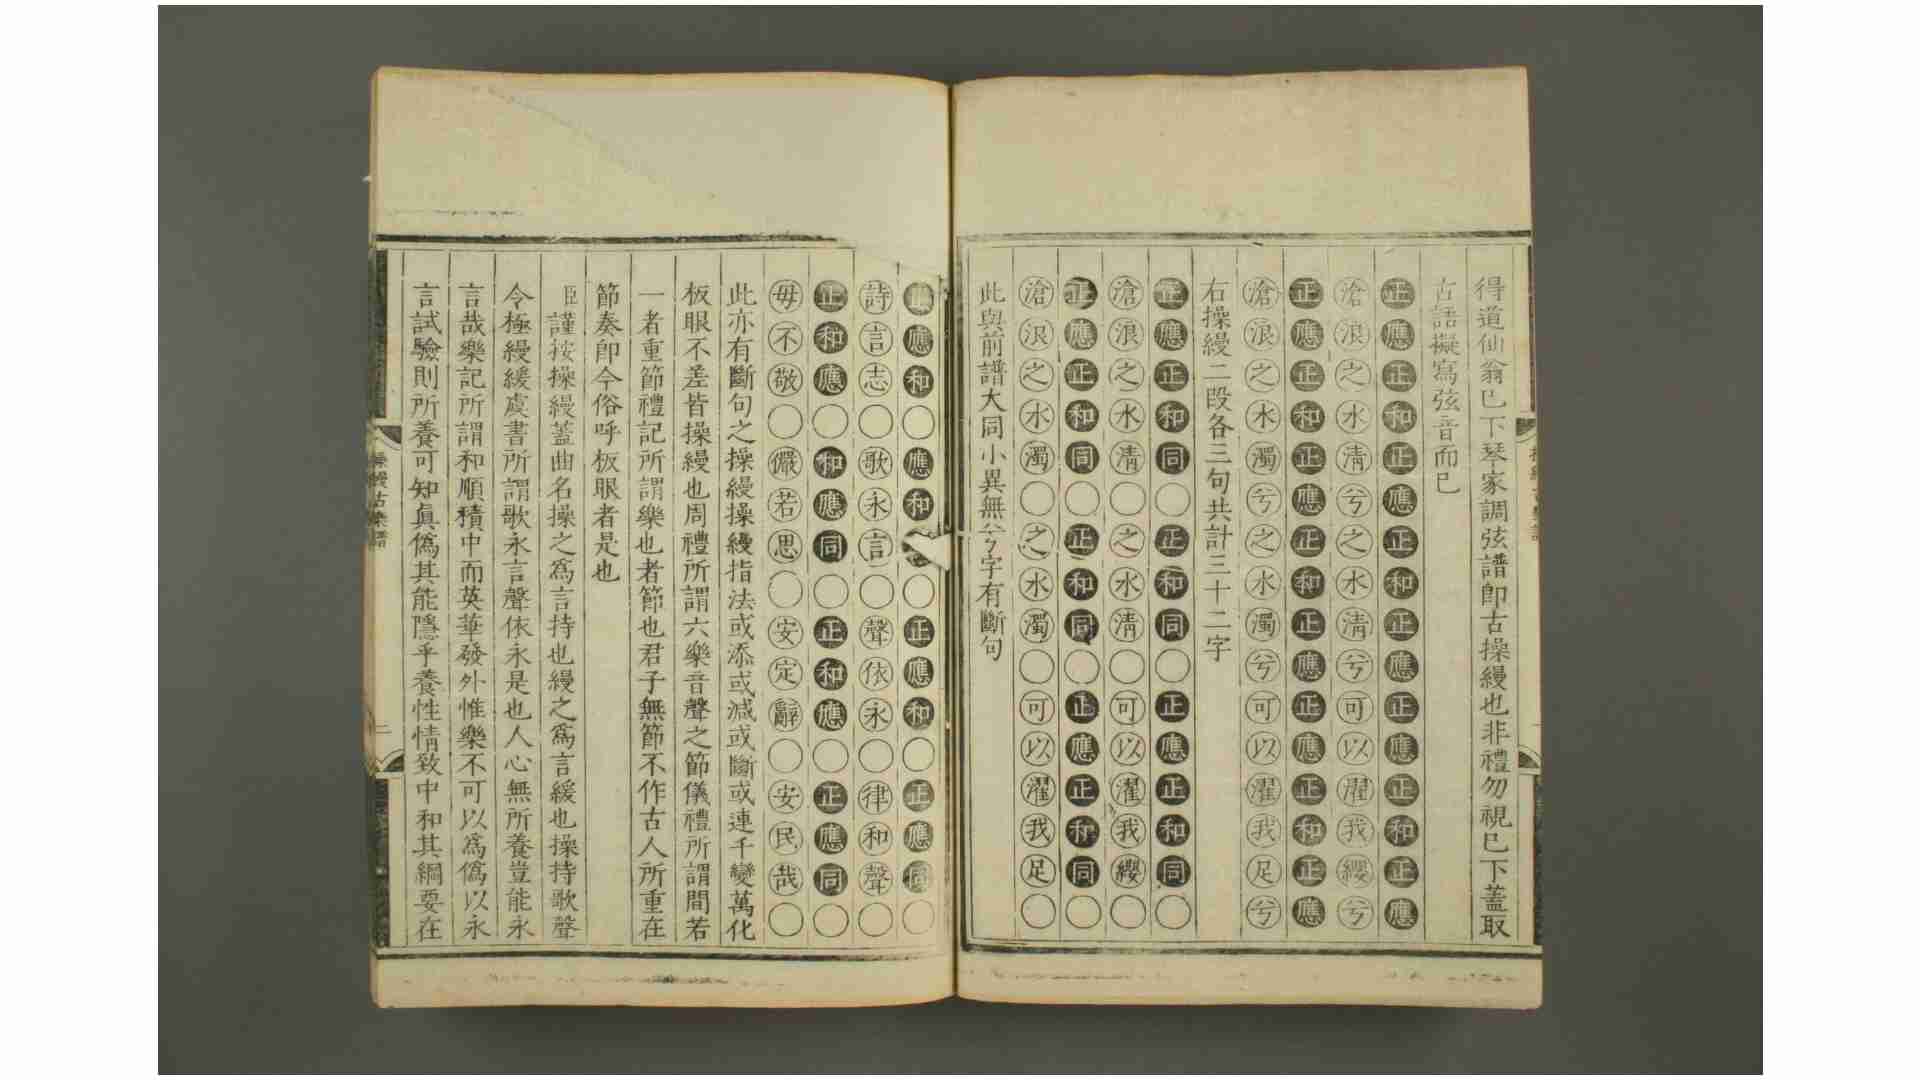 得道仙翁已下琴家調弦譜卽古操縵也非禮勿視已下蓋取
古語擬寫弦音而已
正應正和正應正和正應正應正和正應
滄浪之水清兮之水清兮可以濯我纓兮
正應正和正應正和正應正應正和正應
滄浪之水濁兮之水濁兮可以濯我足兮
右操縵二段各三句共計三十二字
正應正和同○正和同○正應正和同○
滄浪之水清○之水清○可以濯我纓○
正應正和同○正和同○正應正和同○
滄浪之水濁○之水濁○可以濯我足○
此與前譜大同小異無兮字有斷句
正應和○應和○正應和○正應同○
詩言志○歌永言○聲依永○律和聲○
正和應○和應同○正和應○正應同○
毋不敬○儼若思○安定辭○安民哉○
此亦有斷句之操縵操縵指法或添或減或斷或連千變萬化
板眼不差皆操縵也周禮所謂六樂音聲之節儀禮所謂間若
一者重節禮記所謂樂也者節也君子無節不作古人所重在
節奏卽今俗呼板眼者是也
臣謹按操縵蓋曲名操之爲言持也縵之爲言緩也操持歌聲
令極縵緩虞書所謂歌永言聲依永是也人心無所養豈能永
言哉樂記所謂和順積中而英華發外惟樂不可以爲僞以永
言試驗則所養可知眞僞其能隱乎養性情致中和其綱要在
操縵古樂譜
二